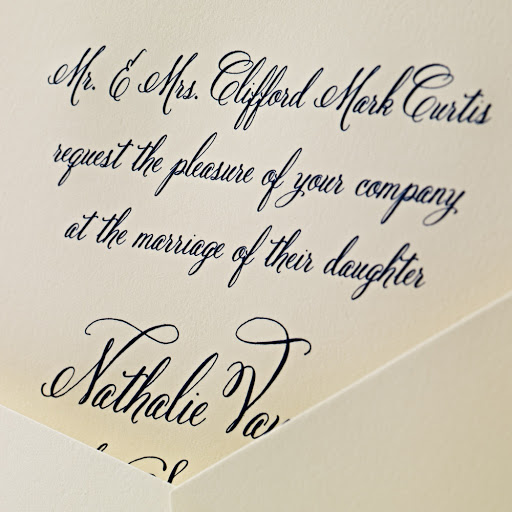 Mr. & Mrs. Clifford Mark Curtis
request the pleasure of your company
at the marriage of their daughter
Nathalie